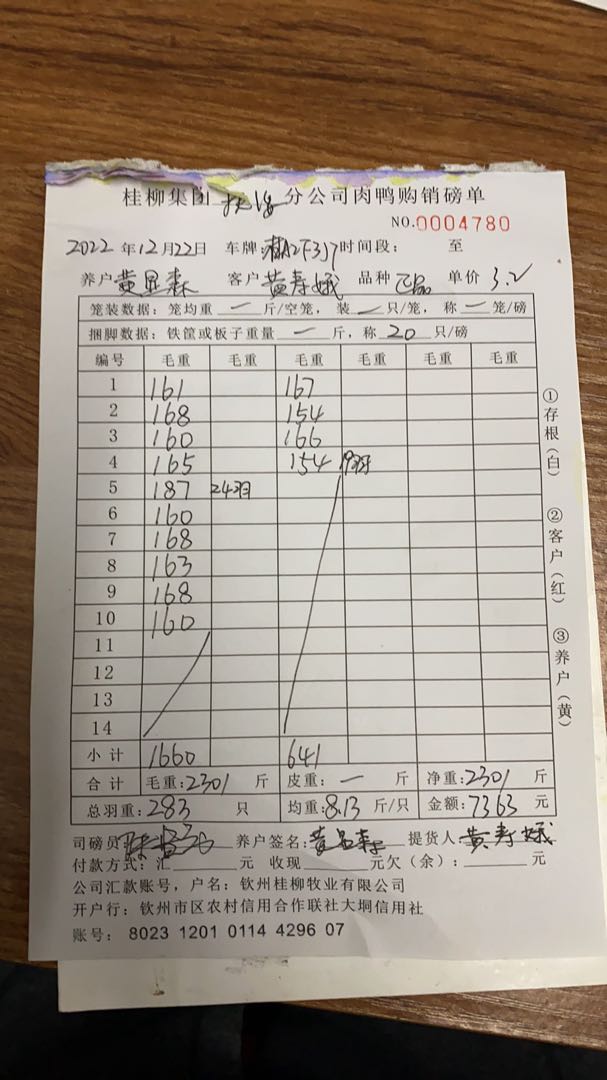 桂柳集团 分公司肉鸭购销磅单
NO.0004780
2022年12月22日 车牌: 时间段: 至
养户黄显森 客户黄寿娥 品种正品 单价3.2
笼装数据:笼均重一斤/空笼,装一只/笼,称一笼/磅
捆脚数据:铁筐或板子重量一斤,称20只/磅
编号 毛重 毛重 毛重 毛重 毛重 毛重
1 161 167
2 168 154
3 160 166
4 165 154 19羽
5 187 24羽
6 160
7 168
8 163
9 168
10 160
11
12
13
14
小计 1660 641
合计 毛重:2301斤 皮重:一斤 净重:2301斤
总羽重:283只 均重:8.13斤/只 金额:7363元
司磅员: 养户签名:黄显森 提货人黄寿娥
付款方式:汇元 收现元欠(余):元
公司汇款账号,户名:钦州桂柳牧业有限公司
开户行:钦州市区农村信用合作联社大垌信用社
账号: 8023 1201 0114 4296 07
①存根(白)
②客户(红)
③养户(黄)